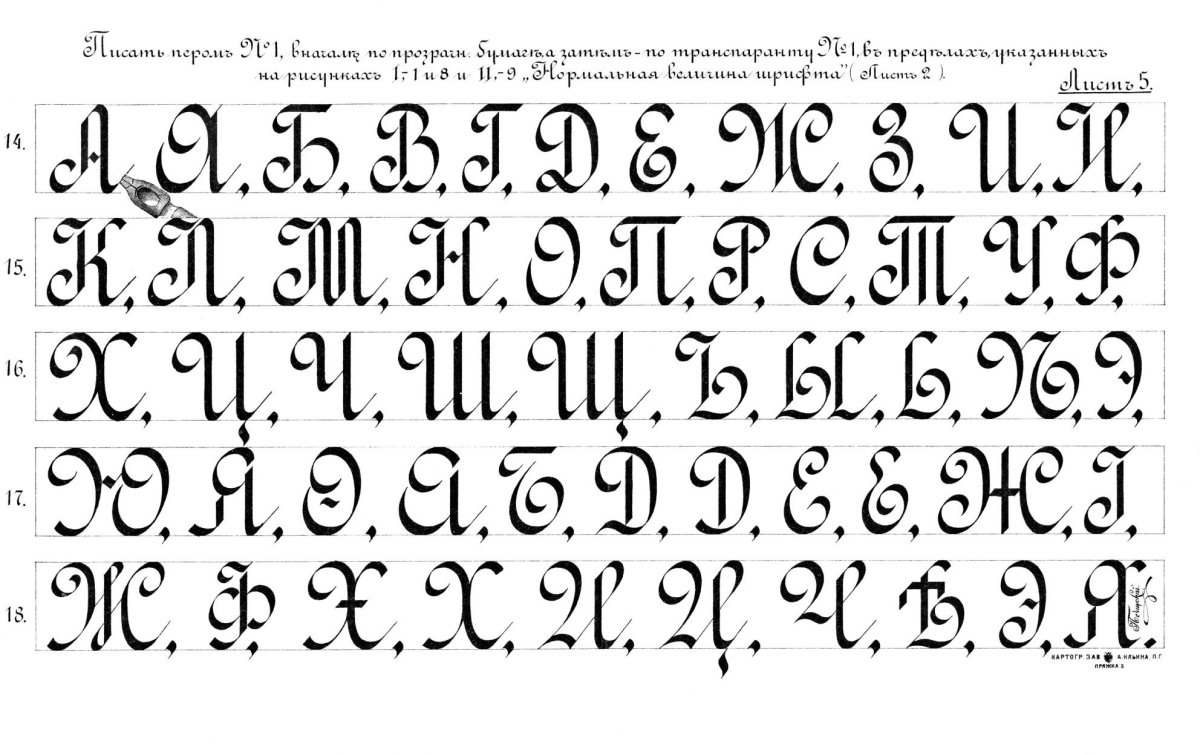 Писать перомъ №1, вначалѣ по прозрачн. бумагѣ, а затѣмъ - по транспаранту №1, въ предѣлахъ, указанныхъ
на рисункахъ 1,-1 и 8 и 11,-9 „Нормальная величина шрифта" (Листъ 2).
Листъ 5.
14. А А, Б, В, Г, Д, Е, Ж, З, И, Й,
15. К, Л, М, Н, О, П, Р, С, Т, У, Ф,
16. Х, Ц, Ч, Ш, Щ, Ъ, Ы, Ь, Ѣ, Э,
17. Ю, Я, Ѳ, А, Б, Д, Д, Е, Е, Ж, І,
18. Ж, Ф, Х, Х, И, Ц, Ч, Ѣ, Э, Я.
КАРТОГР. ЗАВ. А. ИЛЬИНА П.Г.
ПРЯЖКА 5